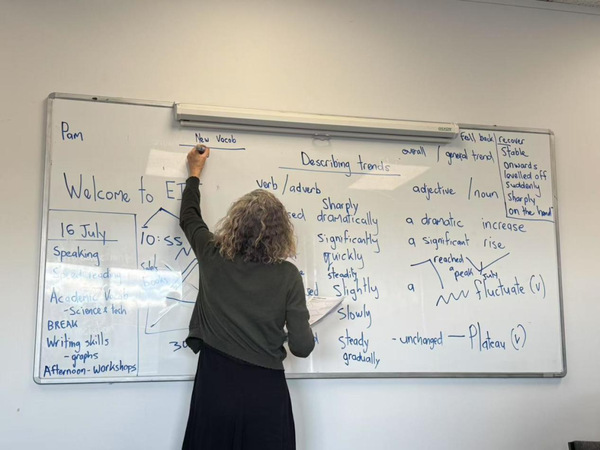 Pam
New Vocab
Welcome to
16 July
Speaking
Academic
- Science & tech
BREAK
Writing skills
- graphs
Afternoon - Workshops
10:55
Describing trends
verb / adverb
Sharply
dramatically
Significantly
quickly
steadily
Slightly
Slowly
steady
gradually
overall | general trend
adjective / noun
a dramatic increase
a significant rise
reached
peak
July
a
fluctuate (v)
- unchanged — Plateau (v)
Fell back
recover
Stable
onwards
levelled off
Suddenly
Sharply
on the hand